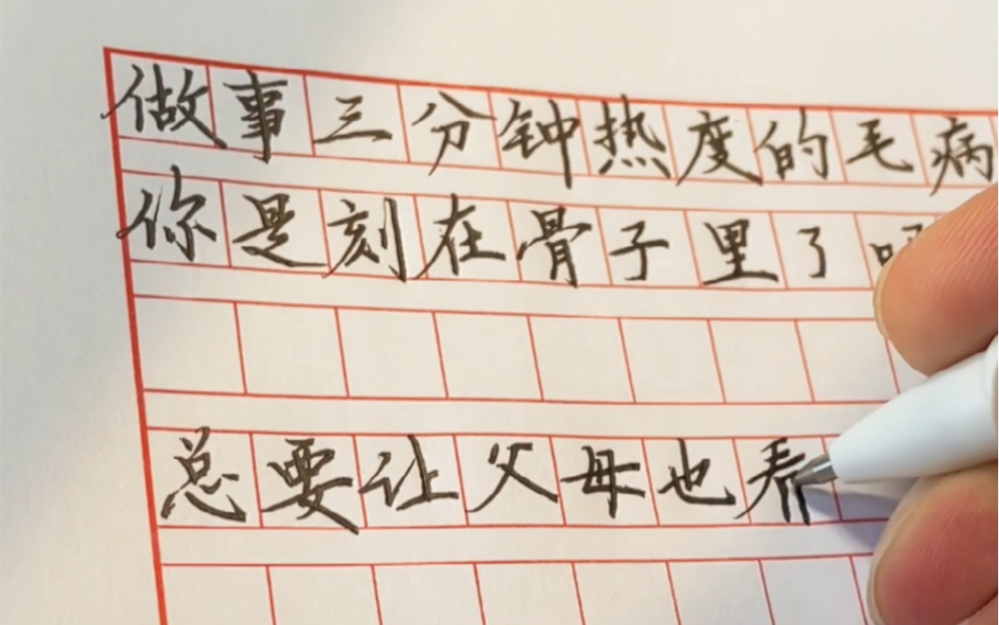 做事三分钟热度的毛病
你是刻在骨子里了
总要让父母也看